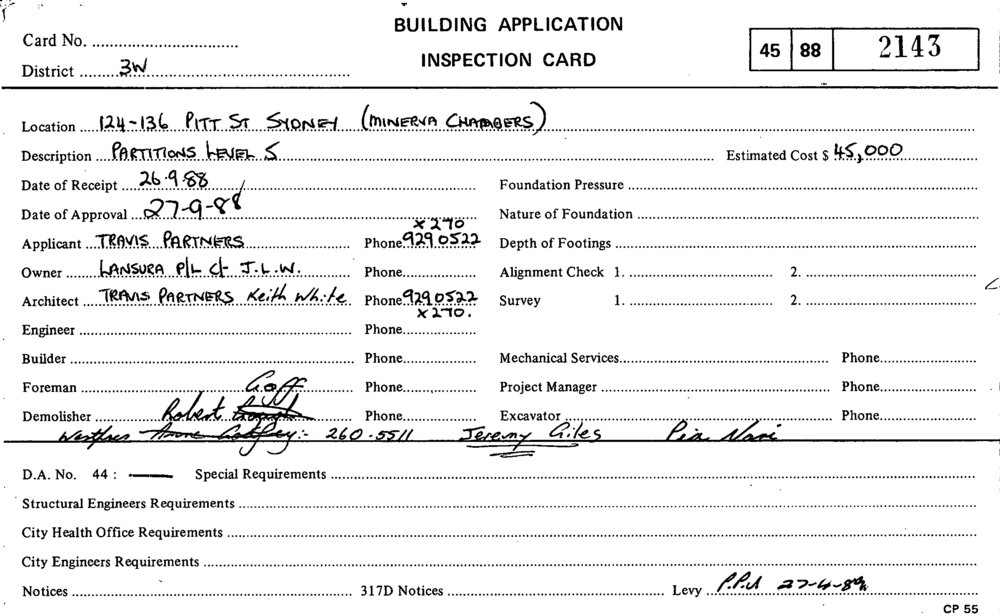 BUILDING APPLICATION
INSPECTION CARD
Card No.
District 3W
45 88 2143
Location 124-136 PITT ST SYDNEY (MINERVA CHAMBERS)
Description PARTITIONS LEVEL 5 Estimated Cost $ 45,000
Date of Receipt 26.9.88 Foundation Pressure
Date of Approval 27-9-88 Nature of Foundation
x 270
Applicant TRAVIS PARTNERS Phone 929 0522 Depth of Footings
Owner LANSURA P/L c/- J.L.W. Phone Alignment Check 1. 2.
Architect TRAVIS PARTNERS Keith White Phone 929 0522 Survey 1. 2.
x 270.
Engineer Phone
Builder Phone Mechanical Services Phone
Foreman Goff Phone Project Manager Phone
Demolisher Robert Phone Excavator Phone
:- 260-5511 Jeremy Giles
D.A. No. 44 : — Special Requirements
Structural Engineers Requirements
City Health Office Requirements
City Engineers Requirements
Notices 317D Notices Levy
CP 55